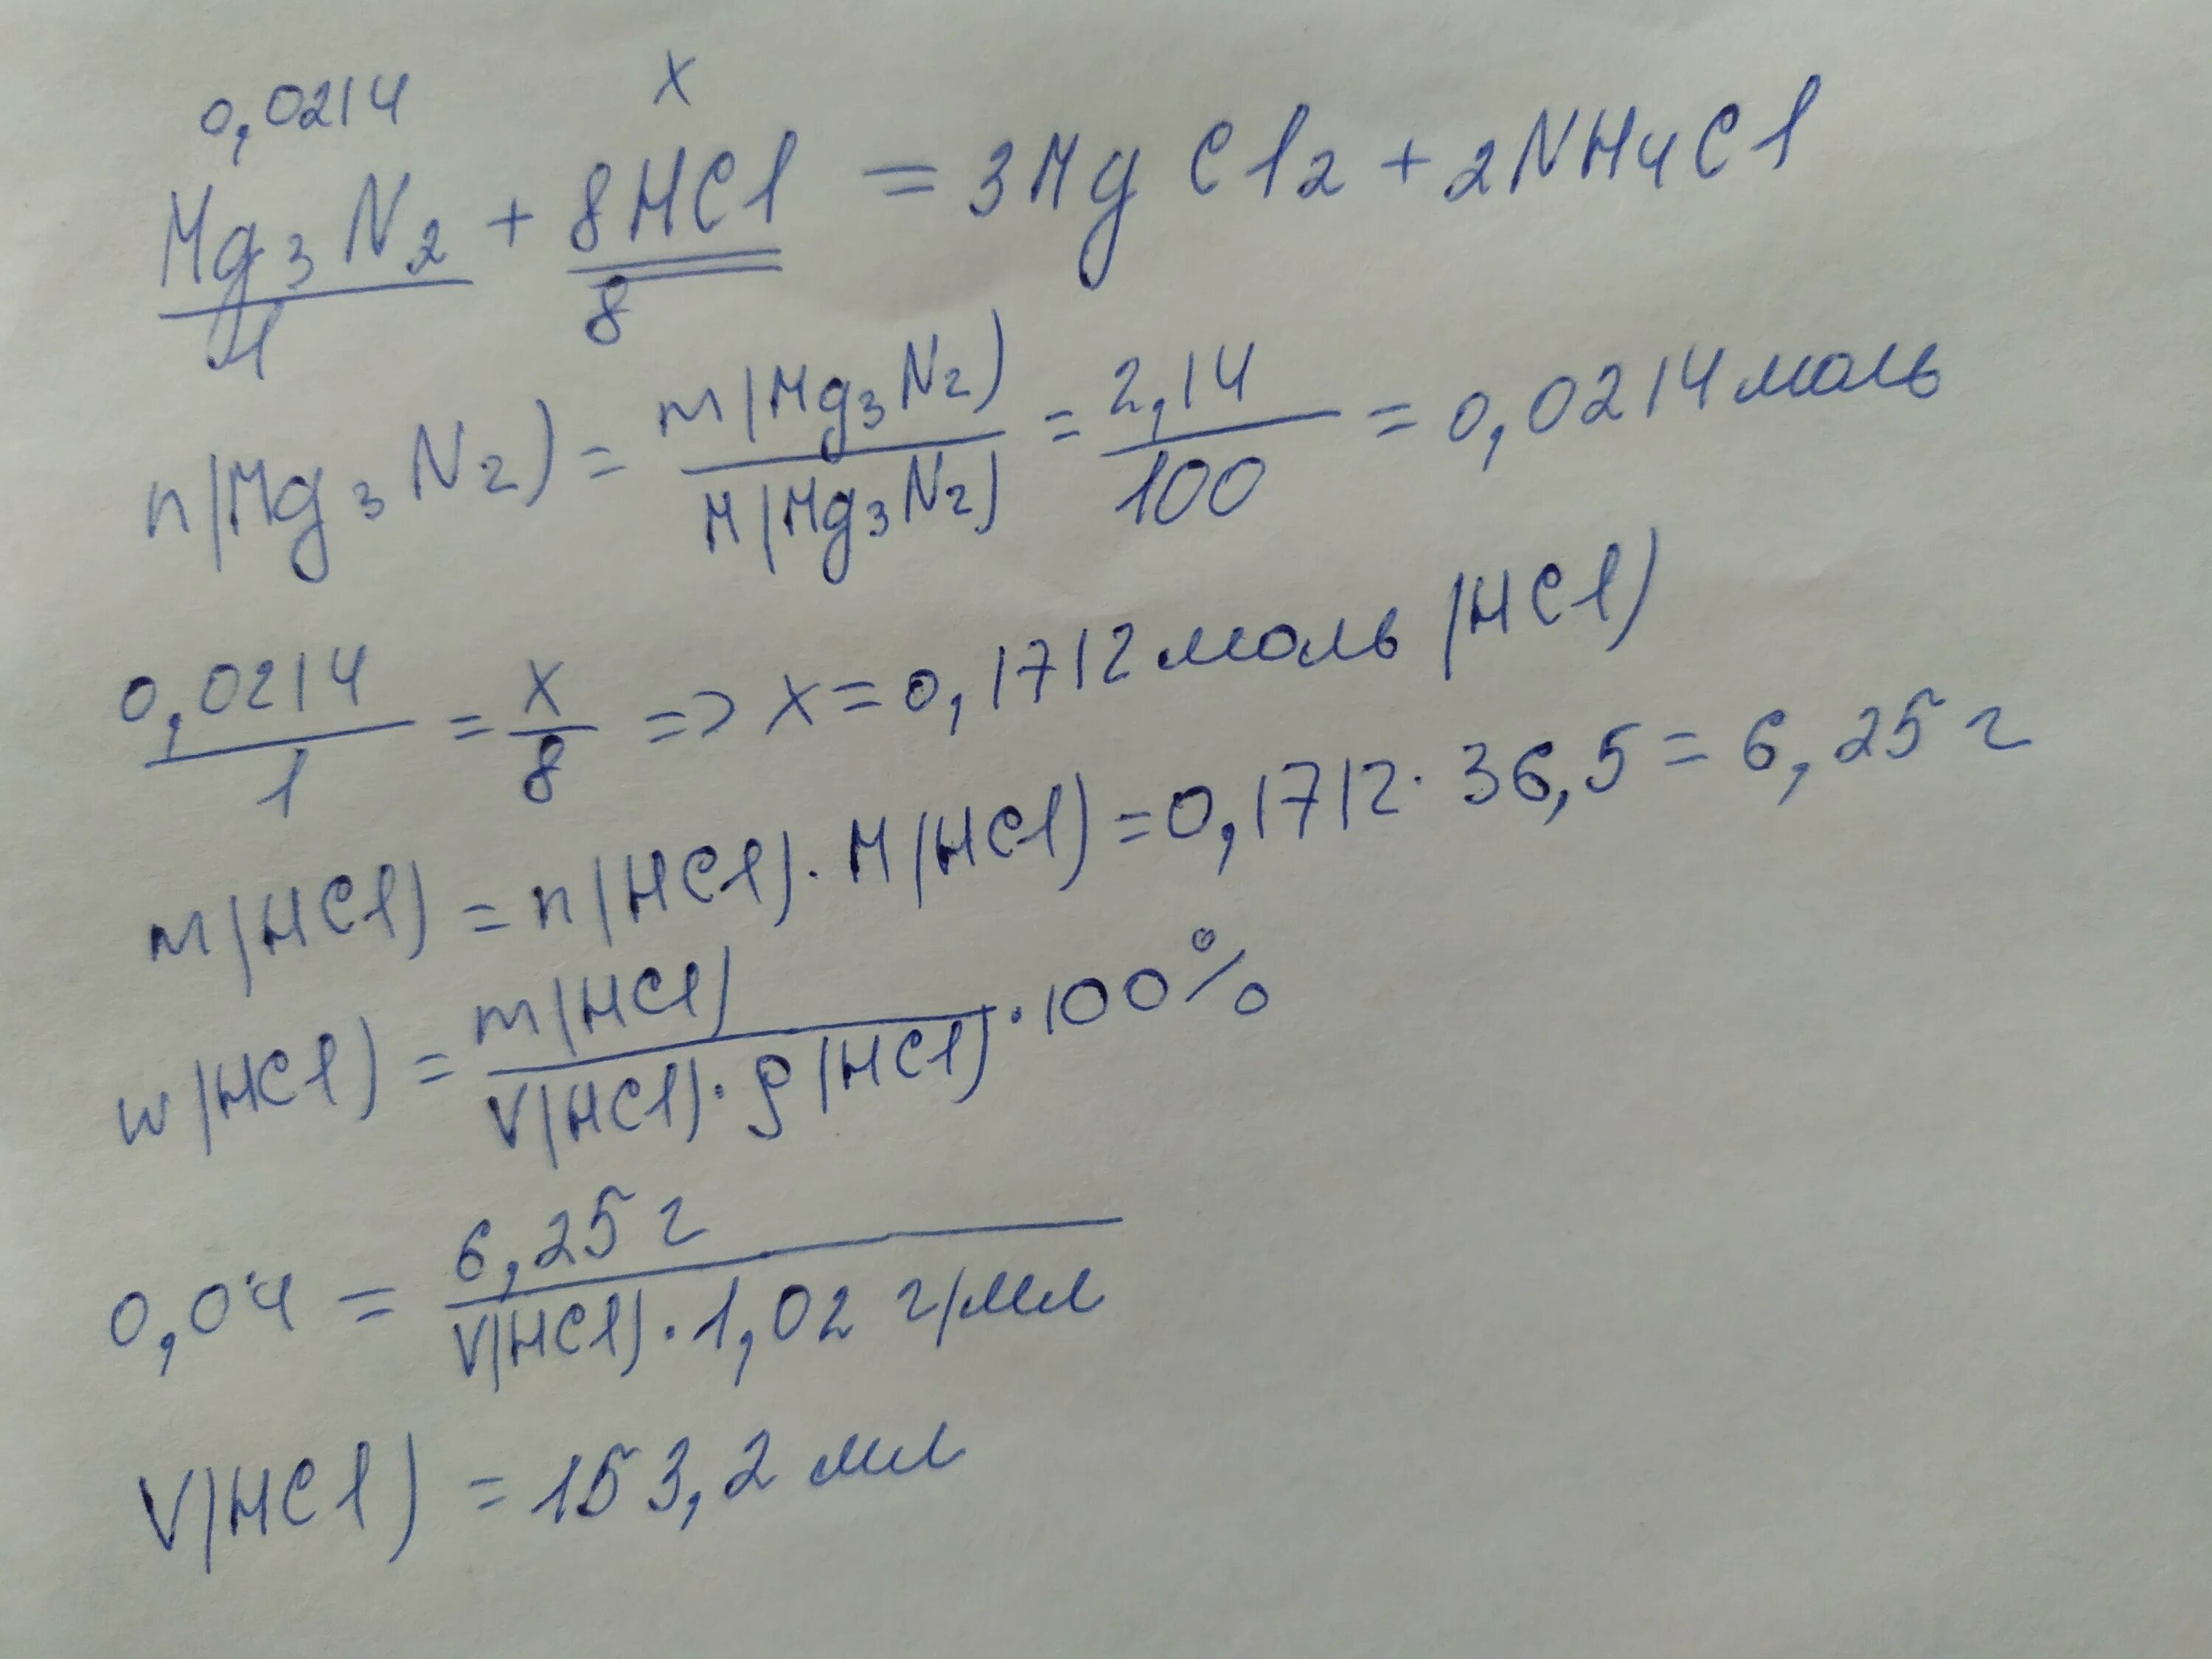 0,0214 x
Mg3N2 + 8HCl = 3MgCl2 + 2NH4Cl
1 8
n(Mg3N2) = m(Mg3N2) / M(Mg3N2) = 2,14 / 100 = 0,0214 моль
0,0214 / 1 = x / 8 => x = 0,1712 моль (HCl)
m(HCl) = n(HCl) · M(HCl) = 0,1712 · 36,5 = 6,25 г
w(HCl) = m(HCl) / V(HCl) · ρ(HCl) · 100%
0,04 = 6,25 г / V(HCl) · 1,02 г/мл
V(HCl) = 153,2 мл